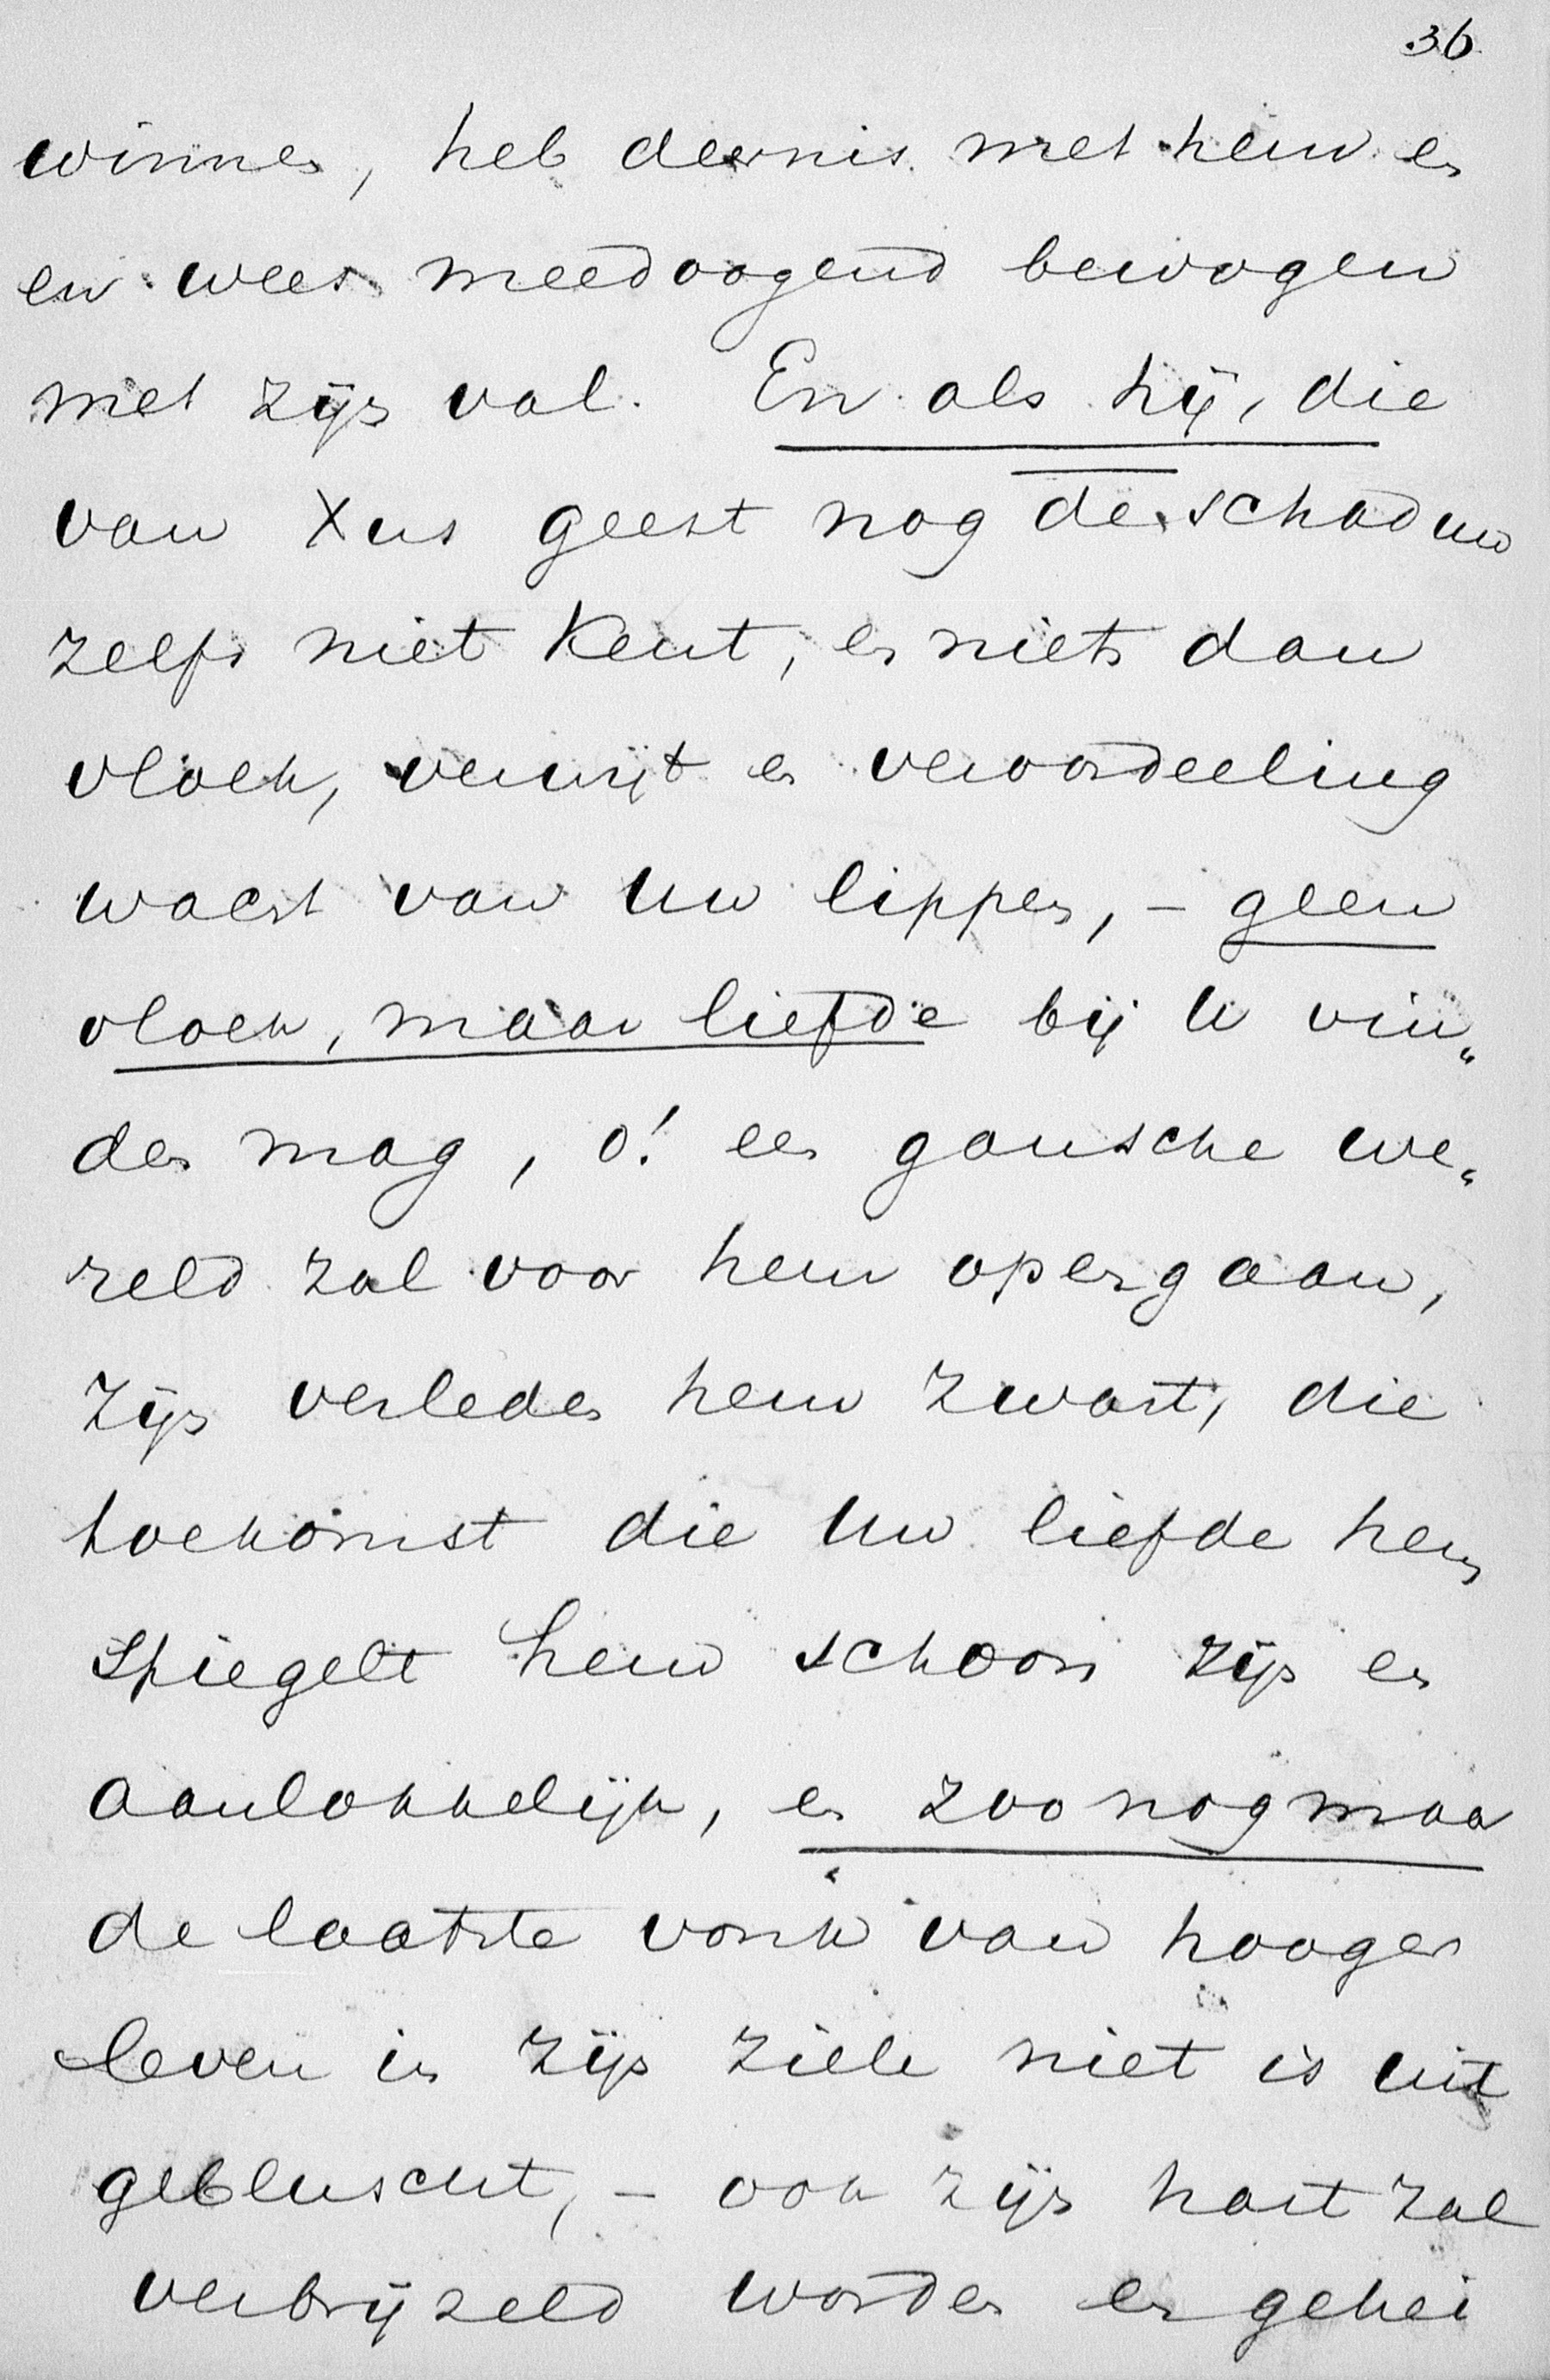 36
winnen, heb deernis met hem en
en wees meedoogend bewogen
met zijn val. En als hij, die
van Xus geest nog de schaduw
zelfs niet kent, en niets dan
vloek, verwijt en veroordeeling
wacht van uw lippen, - geen
vloek, maar liefde bij U vin„
den mag, o! een gansche we„
reld zal voor hem opengaan,
zijn verleden hem zwart, die
toekomst die Uw liefde hem
spiegelt hem schoon zijn en
aanlokkelijk, en zoo nog maar
de laatste vonk van hooger
leven in zijn ziele niet is uit
gebluscht, - ook zijn hart zal
verbrijzeld worden en gehei